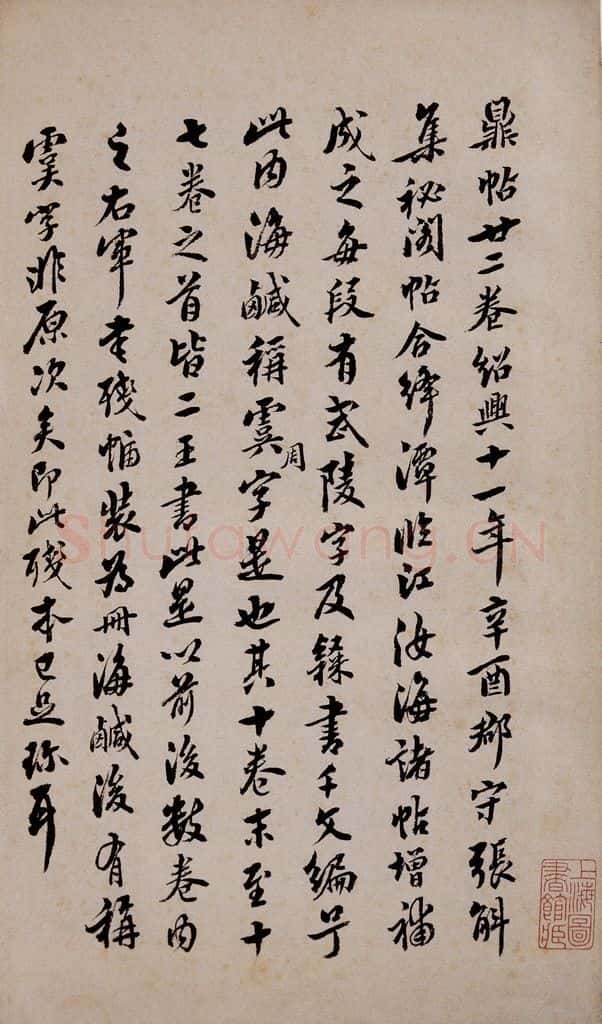 鼎帖廿二卷紹興十一年辛酉郡守張斛
集秘閣帖合絳潭臨江汝海諸帖增補
成之每段有武陵字及隸書千文編号
此內海鹹稱虞周字是也其十卷末至十
七卷之首皆二王書此是以前後數卷內
之右軍書殘幅裝為冊海鹹後有稱
虞字非原次矣即此殘本已足珍耳
上海圖
書館所
Shufawang.CN